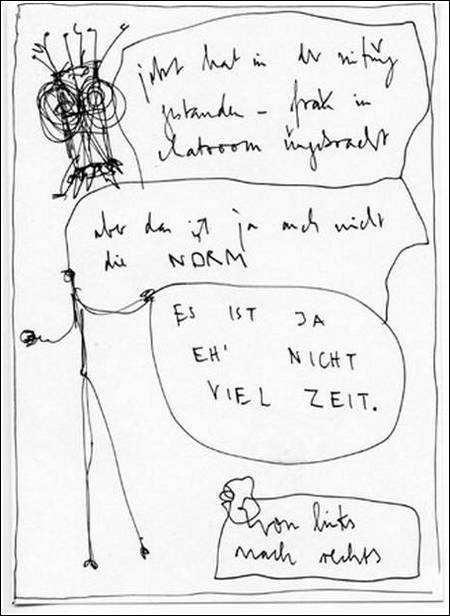 jetzt hat in der zeitung
gestanden – frau in
chatrooom umgebracht
aber das ist ja auch nicht
die NORM
ES IST JA
EH' NICHT
VIEL ZEIT.
von links
nach rechts